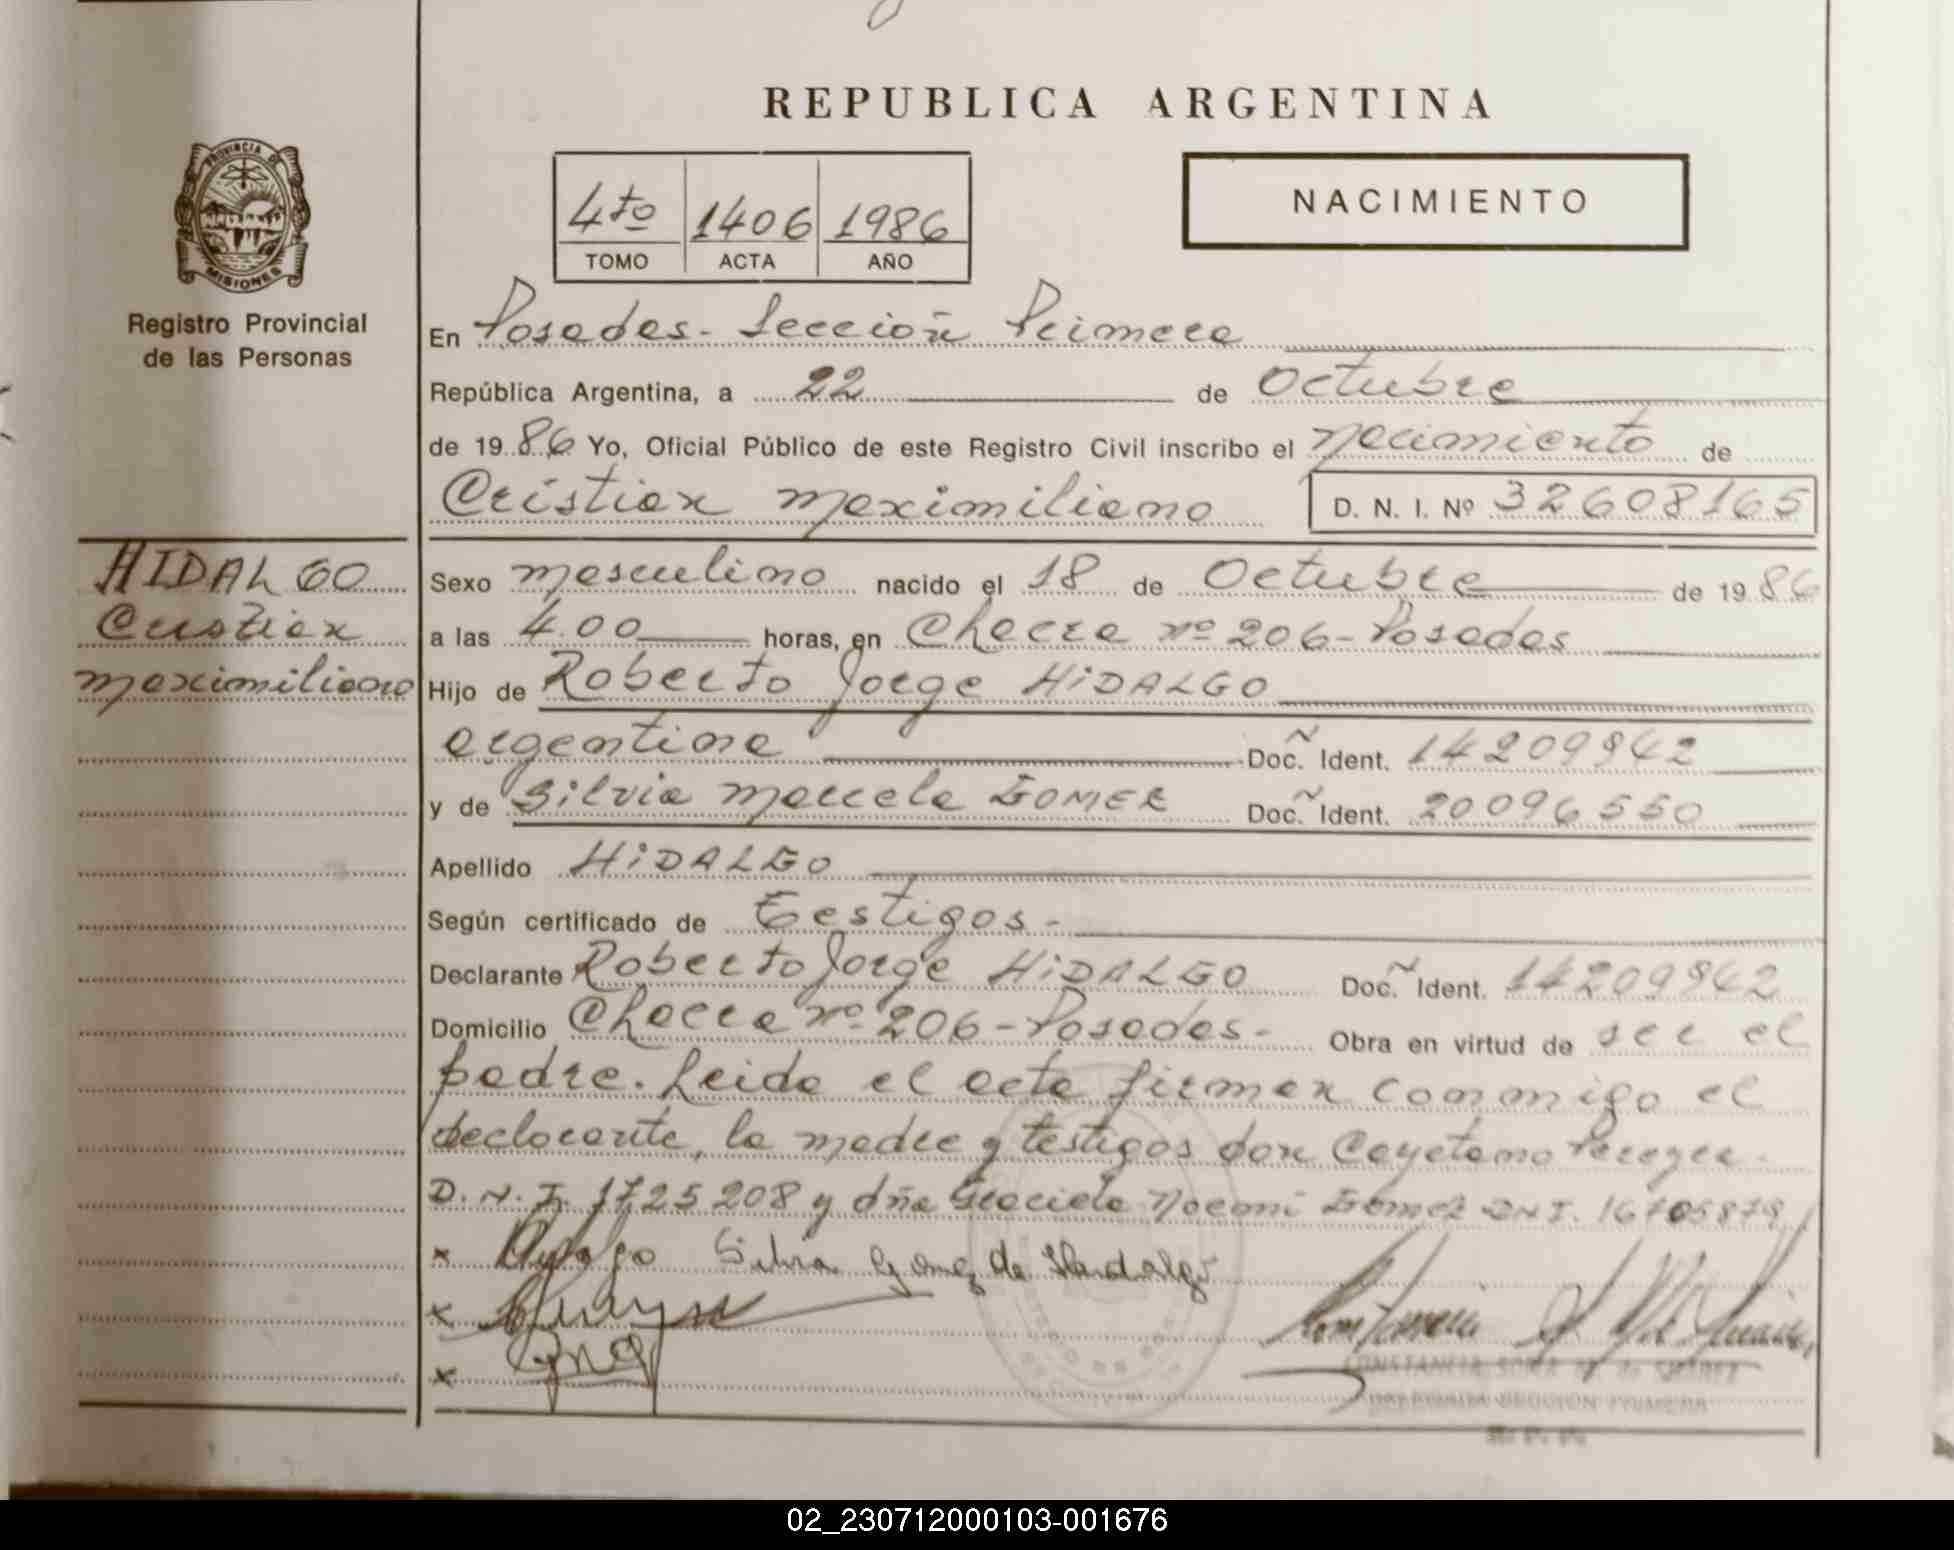 REPUBLICA ARGENTINA
PROVINCIA DE
MISIONES
Registro Provincial
de las Personas
4to 1406 1986
TOMO ACTA AÑO
NACIMIENTO
En Posadas - Sección Primera
República Argentina, a 22 de Octubre
de 1986 Yo, Oficial Público de este Registro Civil inscribo el nacimiento de
Cristian Maximiliano D. N. I. Nº 32608165
HIDALGO
Cristian
Maximiliano
Sexo masculino nacido el 18 de Octubre de 1986
a las 4.00 horas, en Chacra nº 206 - Posadas
Hijo de Roberto Jorge HIDALGO
argentina Doc. Ident. 14209842
y de Silvia Marcela GOMEZ Doc. Ident. 20096550
Apellido HIDALGO
Según certificado de Testigos -
Declarante Roberto Jorge HIDALGO Doc. Ident. 14209842
Domicilio Chacra nº 206 - Posadas - Obra en virtud de ser el
padre. Leida el acta firman conmigo el
declarante, la madre y testigos don Cayetano Pereyra
D.N.I. 1725208 y dña Graciela Noemi Gomez DNI. 16705879
x Hidalgo Silvia Gomez de Hidalgo
x
x
CONSTANCIA SORA M. de SUAREZ
DELEGADA SECCION PRIMERA
R. P. P.
02_230712000103-001676